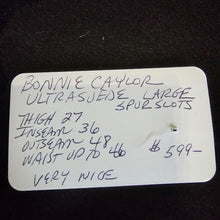 BONNIE CAYLOR
ULTRASUEDE LARGE
SPUR SLOTS
THIGH 27
INSEAM 36
OUTSEAM 48
WAIST UP TO 46 $599-
VERY NICE